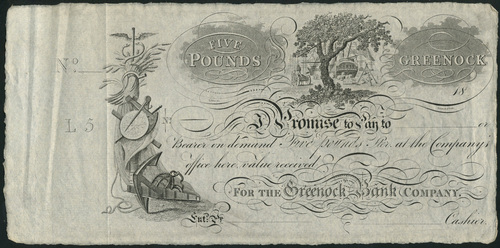 FIVE POUNDS
GREENOCK
No.
18
L 5
No
I Promise to Pay to
or
Bearer on demand Five Pounds Str. at the Company's
office here, value received
FOR THE Greenock Bank COMPANY.
Entd. Pr.
Cashier.